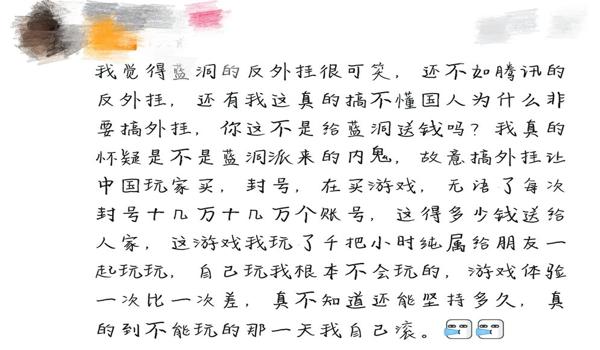 我觉得蓝洞的反外挂很可笑，还不如腾讯的
反外挂，还有我这真的搞不懂国人为什么非
要搞外挂，你这不是给蓝洞送钱吗？我真的
怀疑是不是蓝洞派来的内鬼，故意搞外挂让
中国玩家买，封号，在买游戏，无语了每次
封号十几万十几万个账号，这得多少钱送给
人家，这游戏我玩了千把小时纯属给朋友一
起玩玩，自己玩我根本不会玩的，游戏体验
一次比一次差，真不知道还能坚持多久，真
的到不能玩的那一天我自己滚。